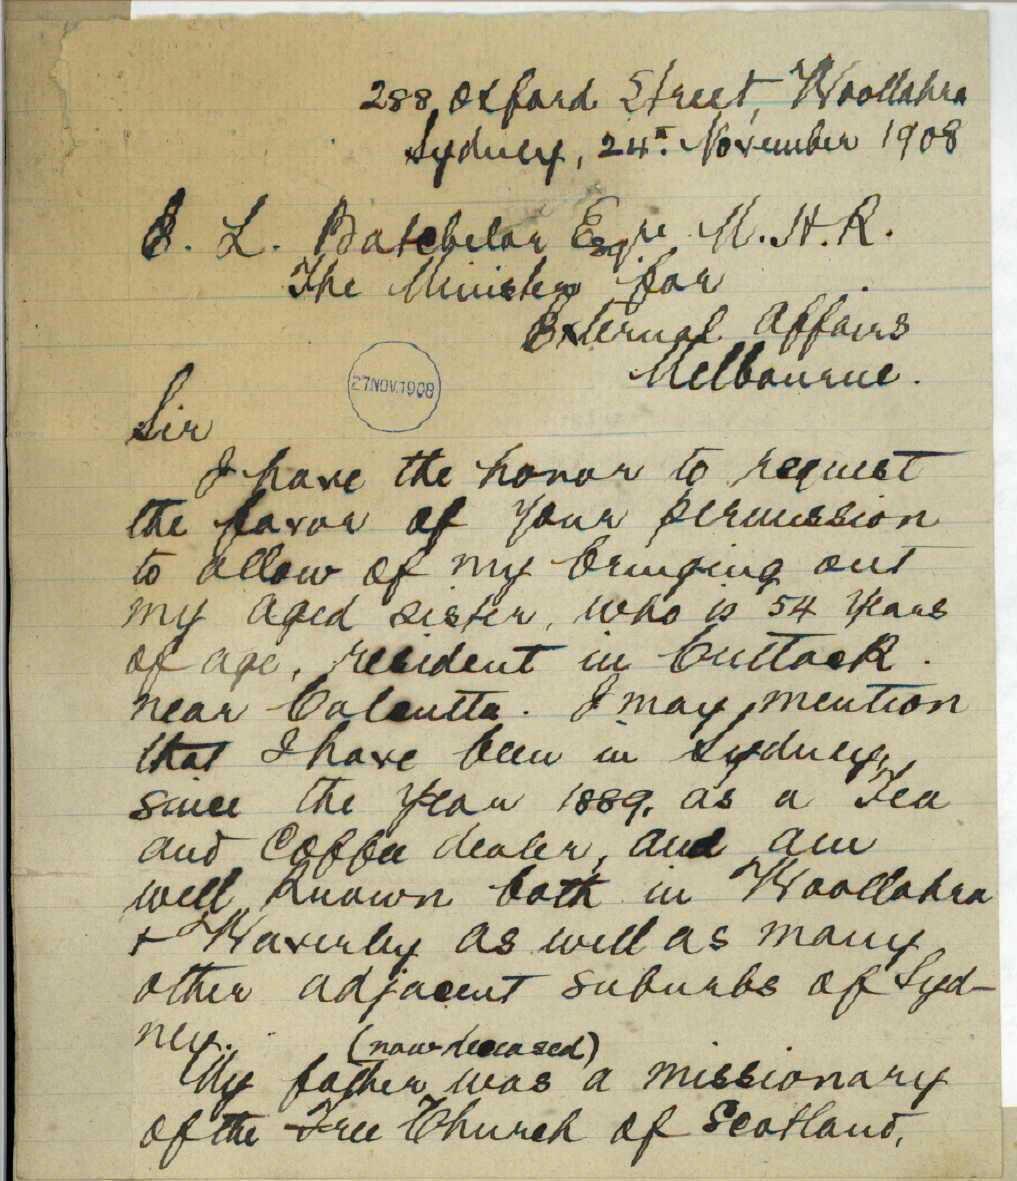 288, Oxford Street, Woollahra
Sydney, 24th. November 1908
E. L. Batchelor Esqre. M.H.R.
The Minister for
External Affairs
Melbourne.
27 NOV. 1908
Sir
I have the honor to request
the favor of your permission
to allow of my bringing out
my aged sister, who is 54 years
of age, resident in Cuttack.
near Calcutta. I may mention
that I have been in Sydney,
since the year 1889, as a Tea
and Coffee dealer, and am
well known both in Woollahra
+ Waverley as well as many
other adjacent suburbs of Syd-
ney.
(now deceased)
My father was a missionary
of the Free Church of Scotland,